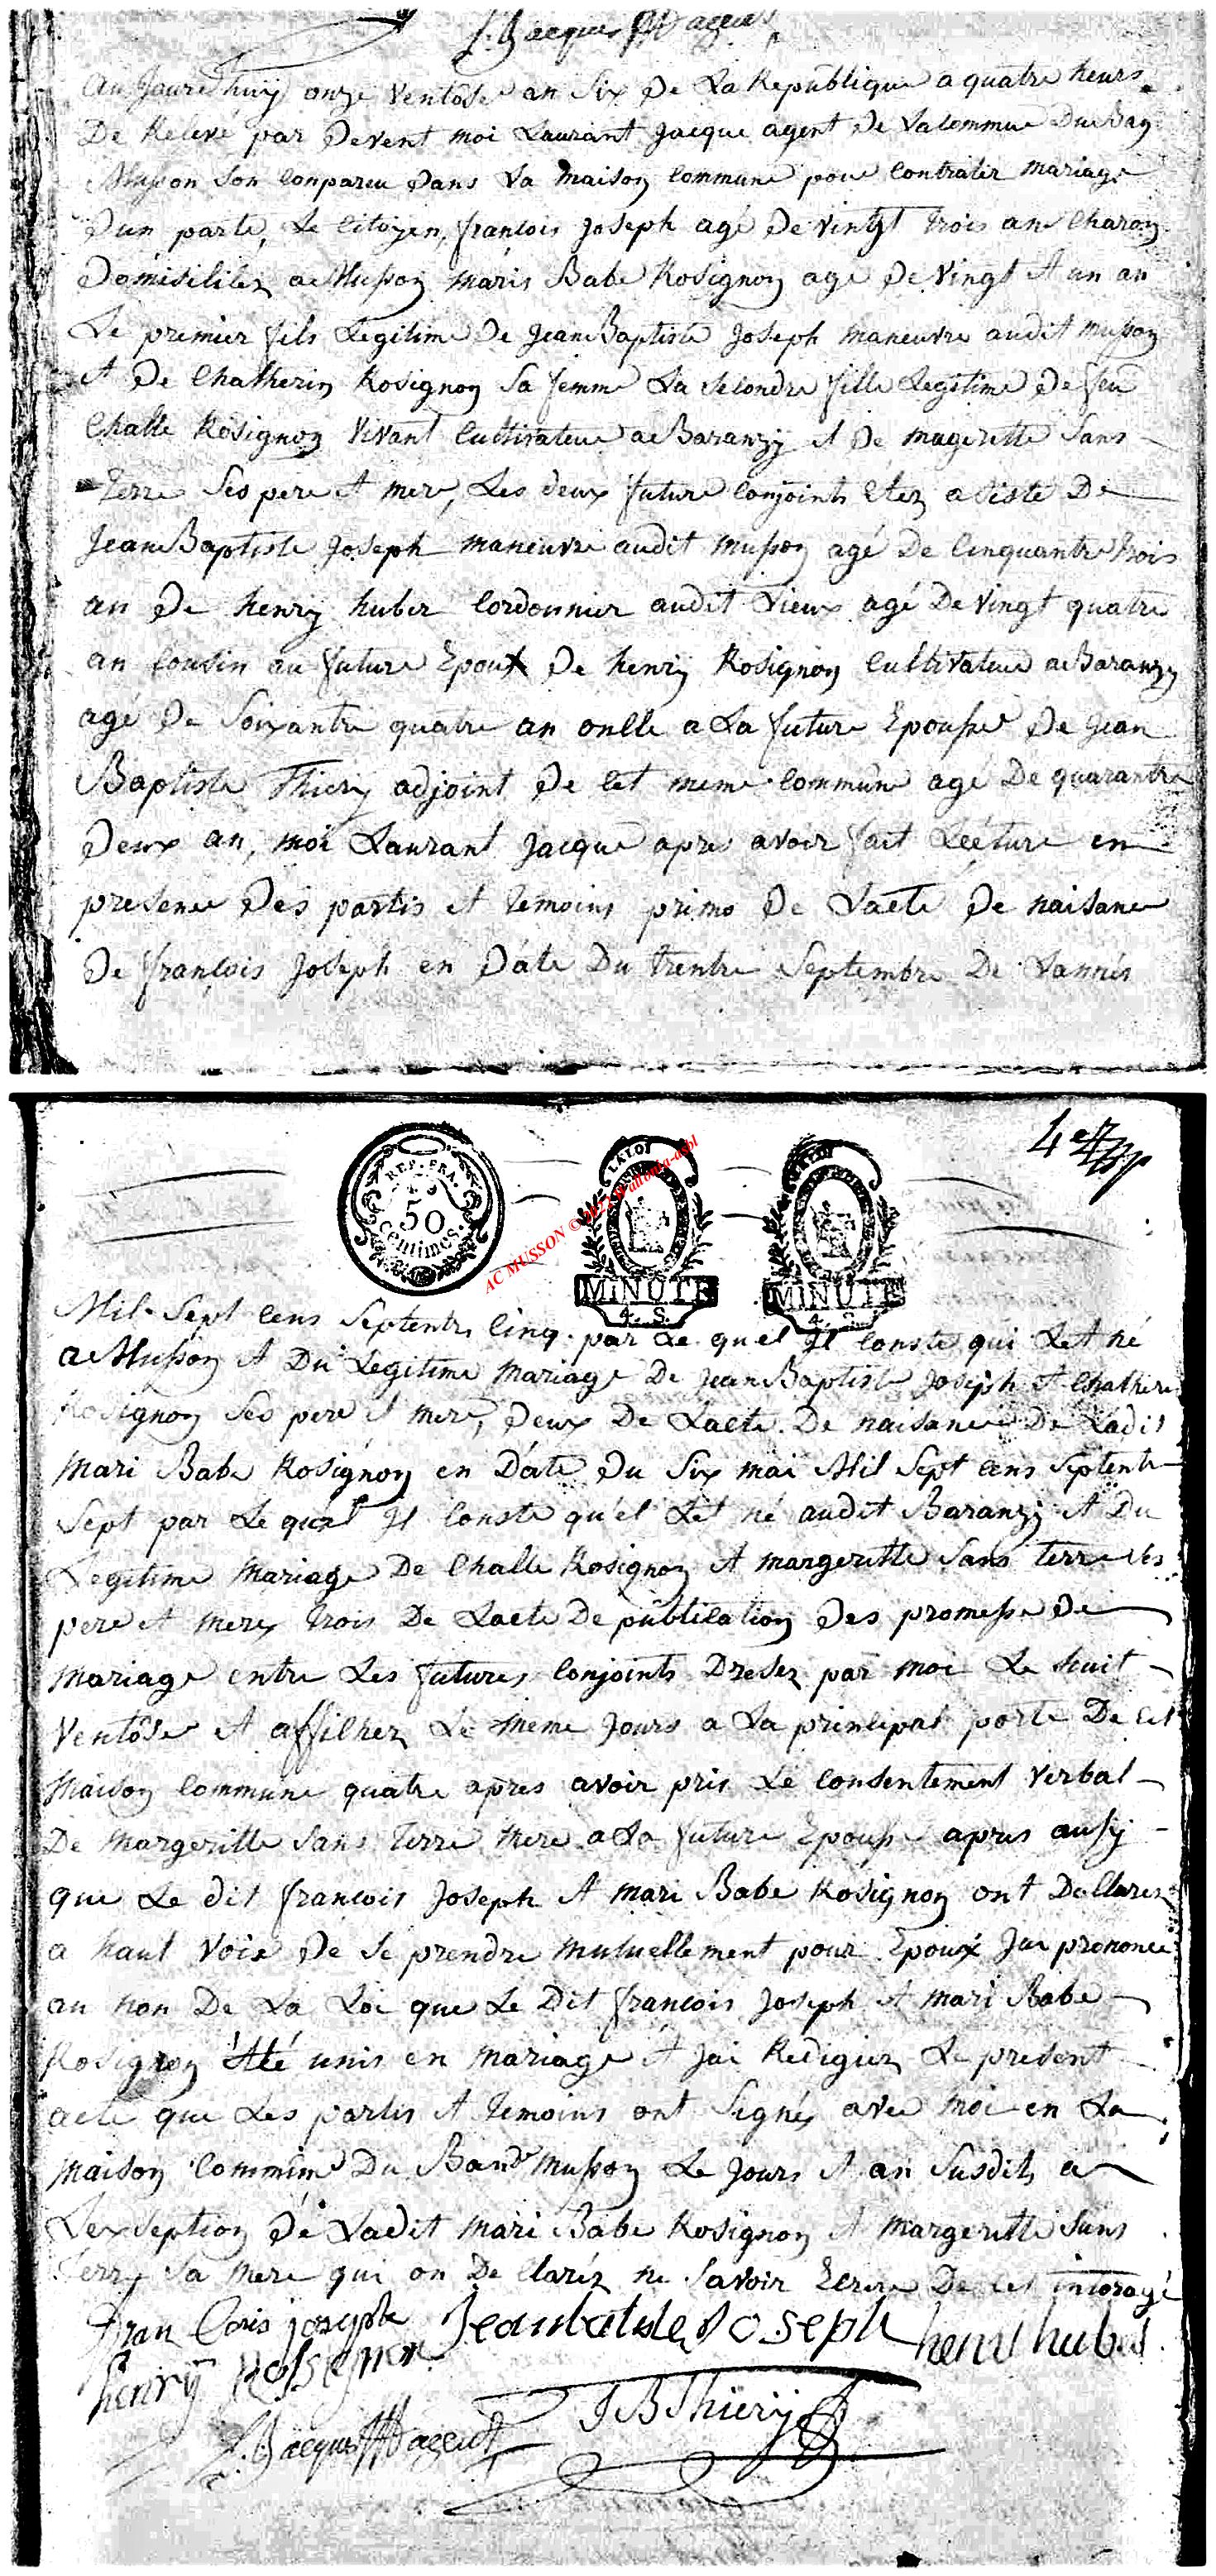 L. Jacques agent
au Jaurdhuij onze Ventôse an Six De La Republique a quatre heurs
De Relevé par Devent moi Laurant Jacque agent De Lalommune Du Ban
Musson Son Conpareu Dans La Maison Commune pour Contrater mariage
D'un parte, Le Citoyen, françois Joseph agé De vingt trois ans Charon
Domisiliez a Musson Maris Babe Rosignon age De Vingt et un an
Le premier fils Legitime De Jean Baptiste Joseph maneuvre audit musson
et De Chatherin Rosignon Sa femme La Secondre fille Legitime De feu
Challe Rosignon Vivant Cultivateur a Baranzÿ et De mageritte Sans
Terre Ses pere et mere, Les deux future Conjoints Etez asisté De
Jean Baptiste Joseph maneuvre audit musson agé De Cinquantre trois
an De henry huber Cordonnier audit Lieux agé De vingt quatre
an Cousin au future Epoux De henrij Rosignon Cultivateur a Baranzy
agé De Soixantre quatre an onlle a La future Epousse De Jean
Baptiste Thiery adjoint De Cet meme Commune age De quarantre
Deux an, moi Laurant Jacque apres avoir fait Lecture en
presence Des partis et temoins primo De Lacte De naisance
De françois Joseph en Date Du trentre Septembre De Lannés
4e
REP. FRA.
50
Centimes.
LA LOI
MINUTE
4. S.
LA LOI
MINUTE
4. S.
AC MUSSON © 2022 Wallonia-asbl
Mil Sept Cens Septentre Cinq par Le quel Il Conste qui Let né
a Musson et Du Legitime Mariage De Jean Baptiste Joseph et Chatherin
Rosignon Ses pere et mere, Deux De Lacte De naisance De Ladit
Mari Babe Rosignon en Date Du Six mai Mil Sept Cens Septentre
Sept par Le quel Il Conste qu'el Let né audit Baranzy et Du
Legitime Mariage De Challe Rosignon et margeritte Sans terre Ses
pere et mere, trois De Lacte De publication Des promesse De
Mariage entre Les futures Conjoints Dresez par moi Le huit
Ventôse et affichez Le meme Jours a La principal porte De Cet
Maison Commune quatre apres avoir pris Le Consentement Verbal
De Margeritte Sans Terre Mere a La future Epousse apres aussy
que Le dit francois Joseph et Mari Babe Rosignon ont Declarez
a haut Voix De Se prendre Mutuellement pour Epoux Jai prononcé
au non De La Loi que Le Dit francois Joseph et Mari Babe
Rosignon Eté unis en Mariage et Jai Redigiez Le present
acte que Les partis et temoins ont Signés avec Moi en La
Maison Commune Du Band Musson Le Jours et an Susdits a
Lexseption De Ladit Mari Babe Rosignon et Margeritte Sans
Terre Sa Mere qui on De Claréz ne Savoir Ecrire De Cet
fran Cois joseph Jeanbatiste Joseph henri huber
henry Rossignon
J B Thiery
L. Jacques agent